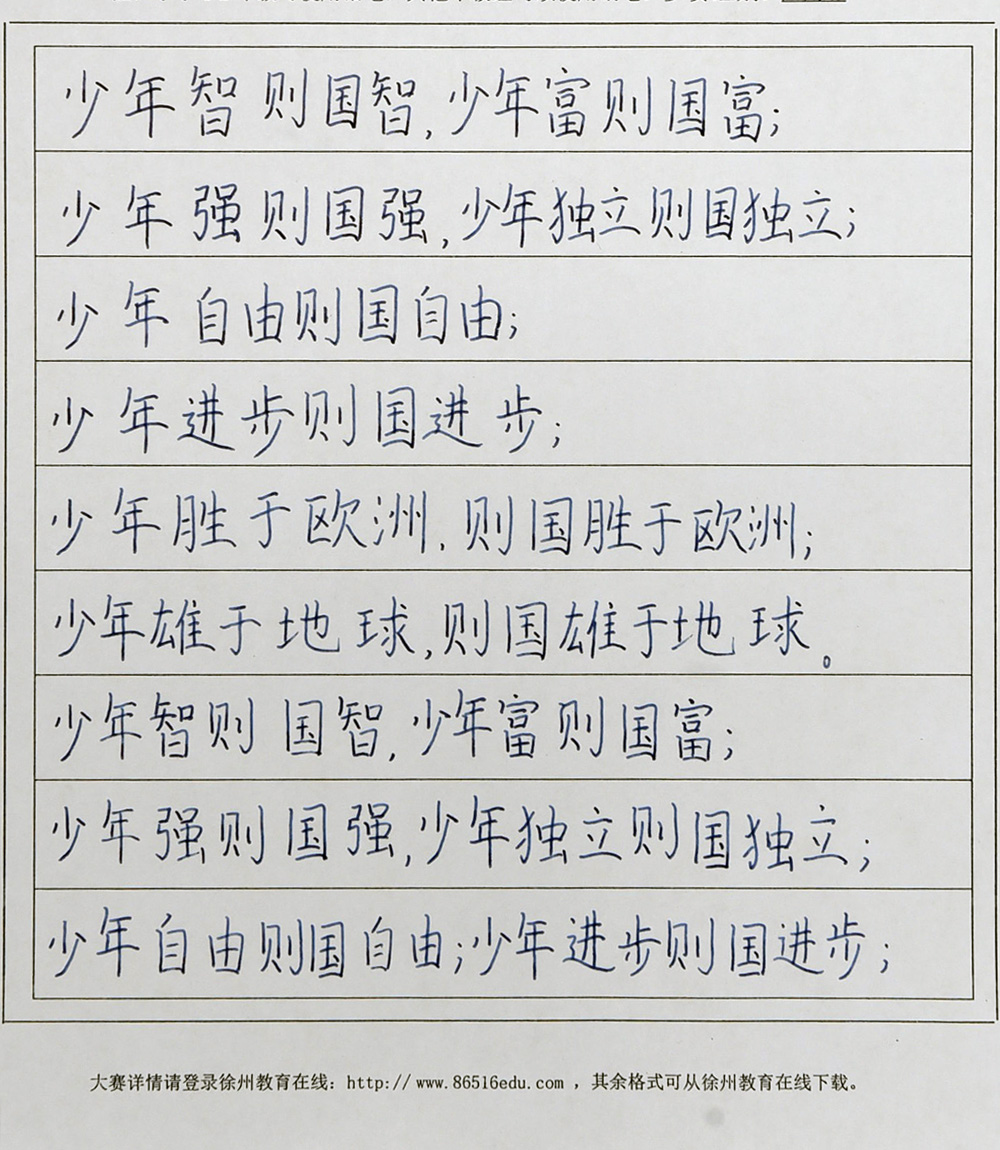 少年智则国智,少年富则国富;
少年强则国强,少年独立则国独立;
少年自由则国自由;
少年进步则国进步;
少年胜于欧洲,则国胜于欧洲;
少年雄于地球,则国雄于地球。
少年智则国智,少年富则国富;
少年强则国强,少年独立则国独立;
少年自由则国自由;少年进步则国进步;
大赛详情请登录徐州教育在线: http://www.86516edu.com ，其余格式可从徐州教育在线下载。